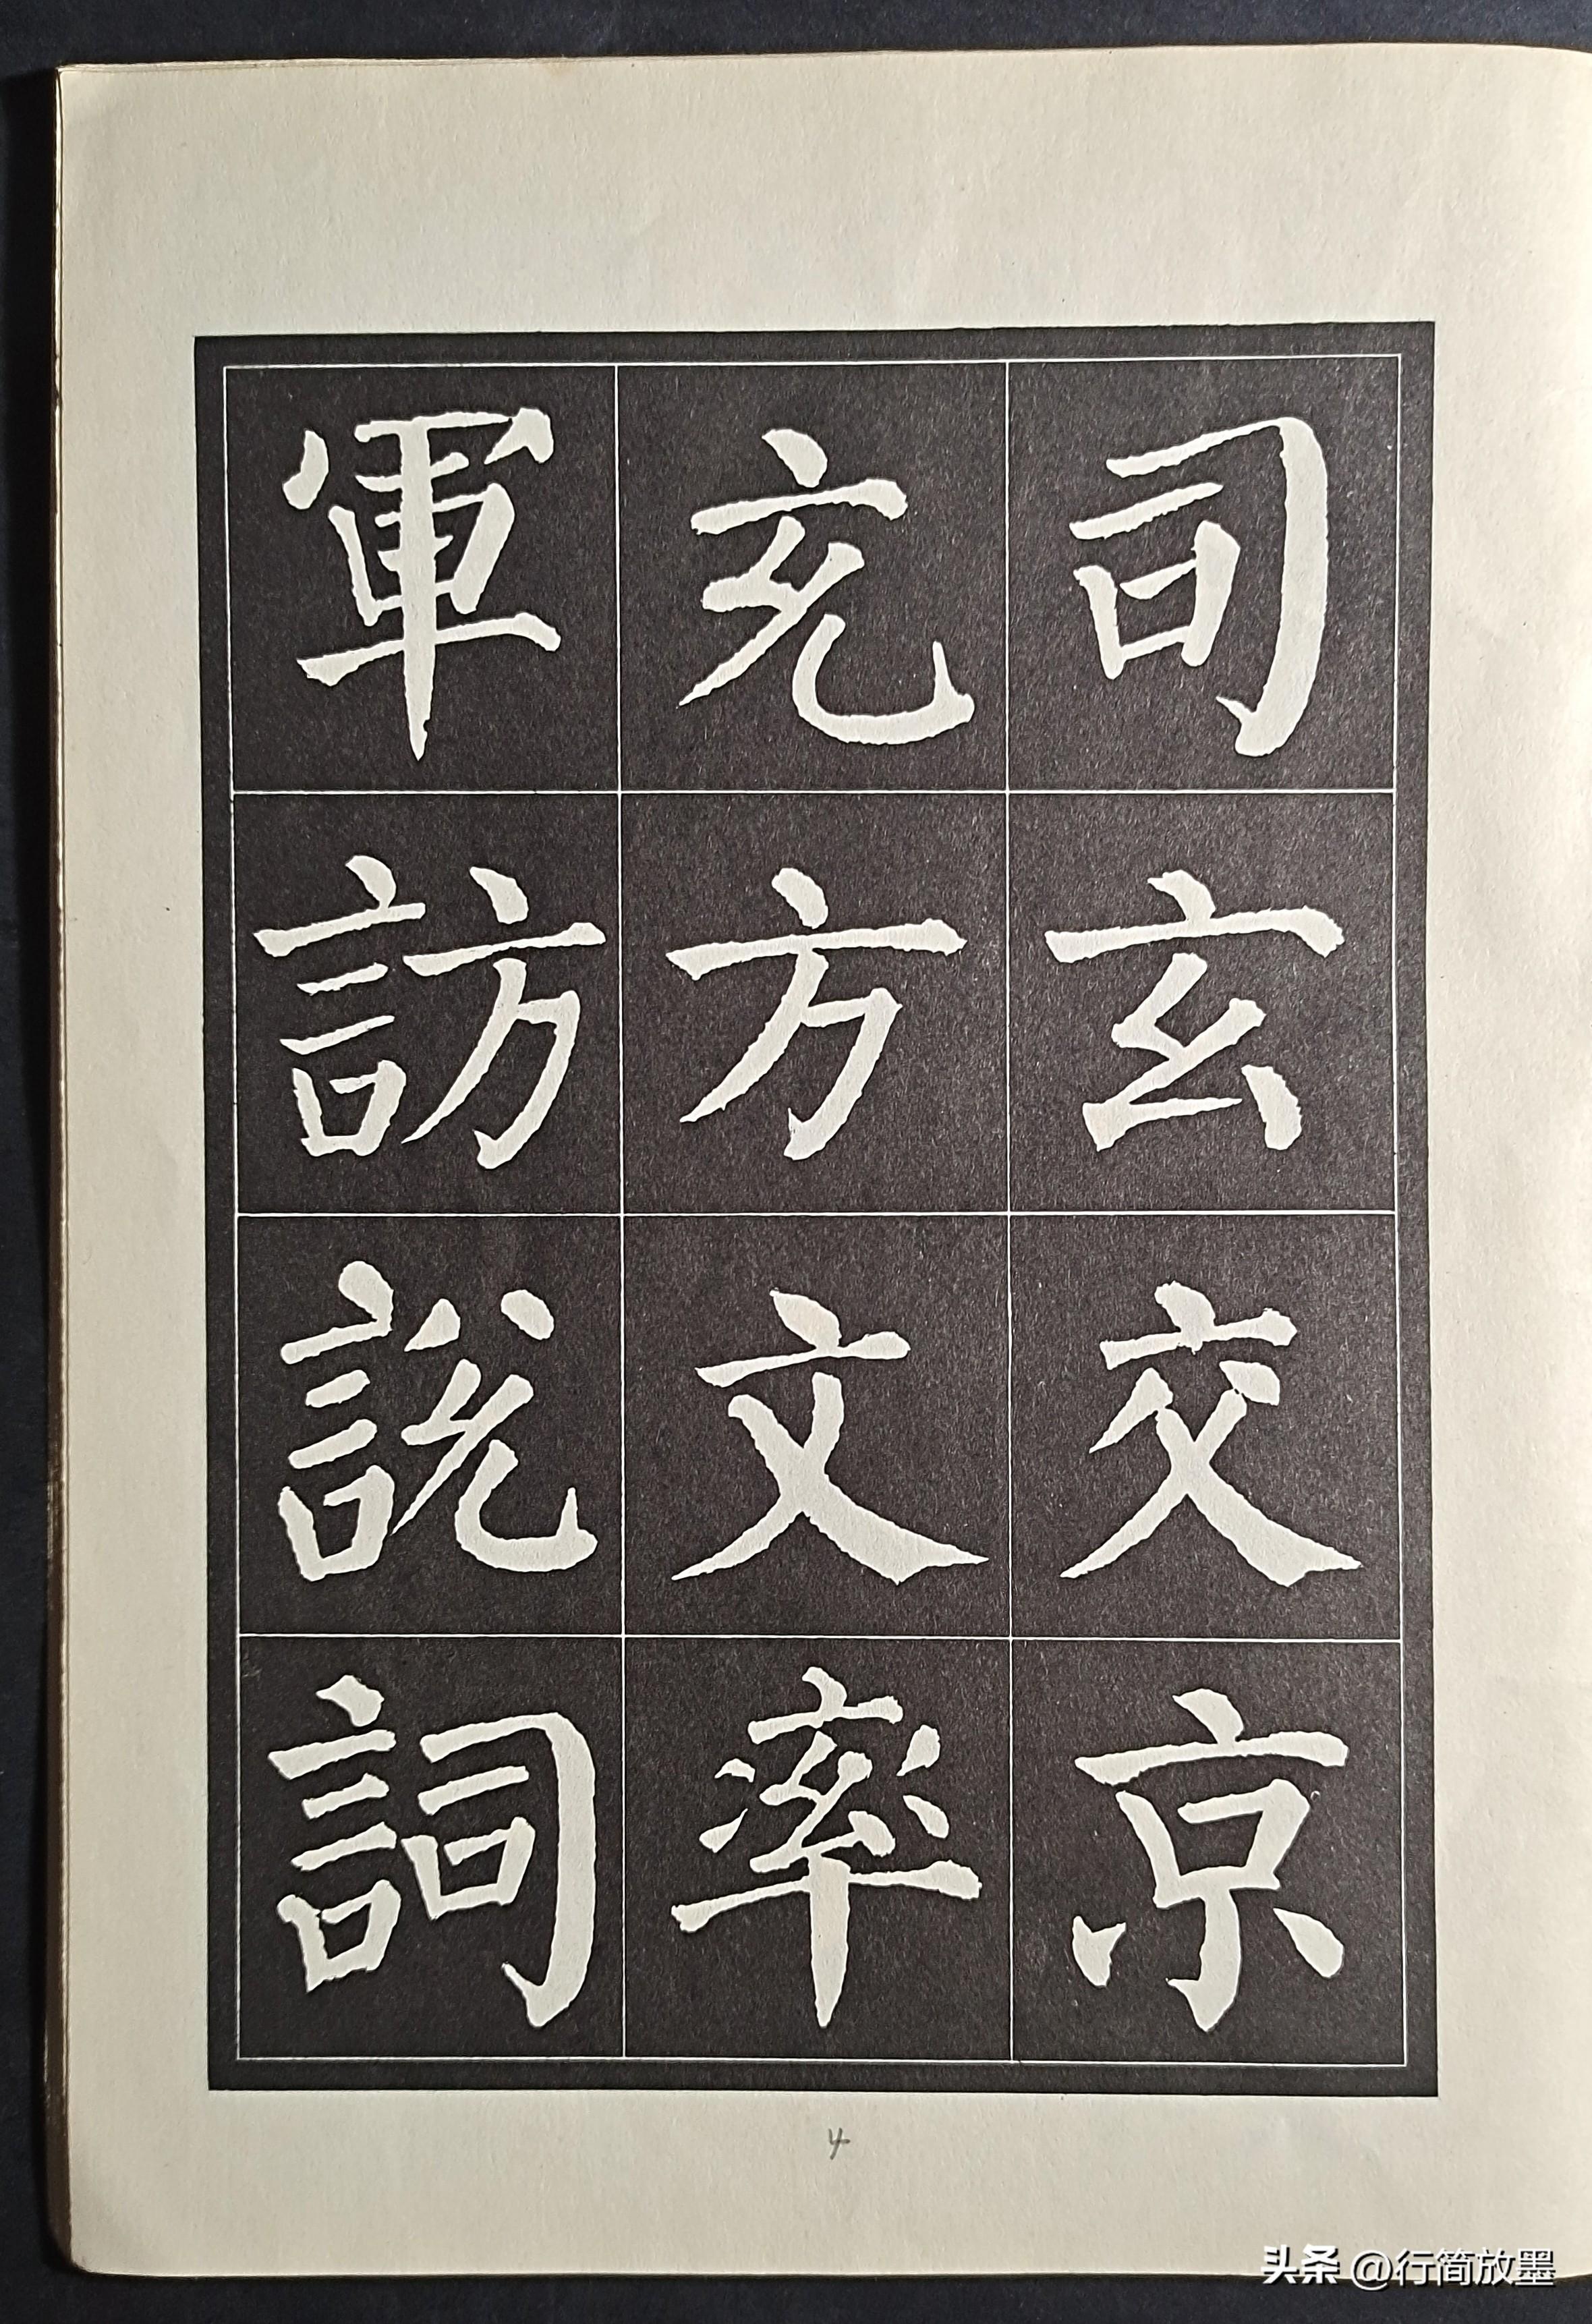 司玄交京
充方文率
軍訪説詞
4
头条 @行简放墨